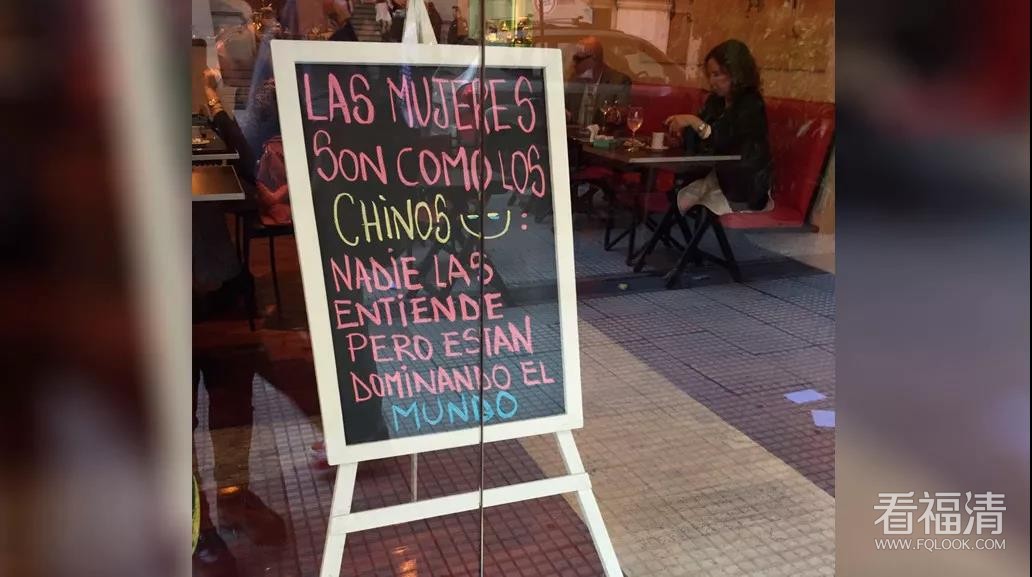 LAS MUJERES
SON COMO LOS
CHINOS :
NADIE LAS
ENTIENDE
PERO ESTAN
DOMINANDO EL
MUNDO
看福清
WWW.FQLOOK.COM